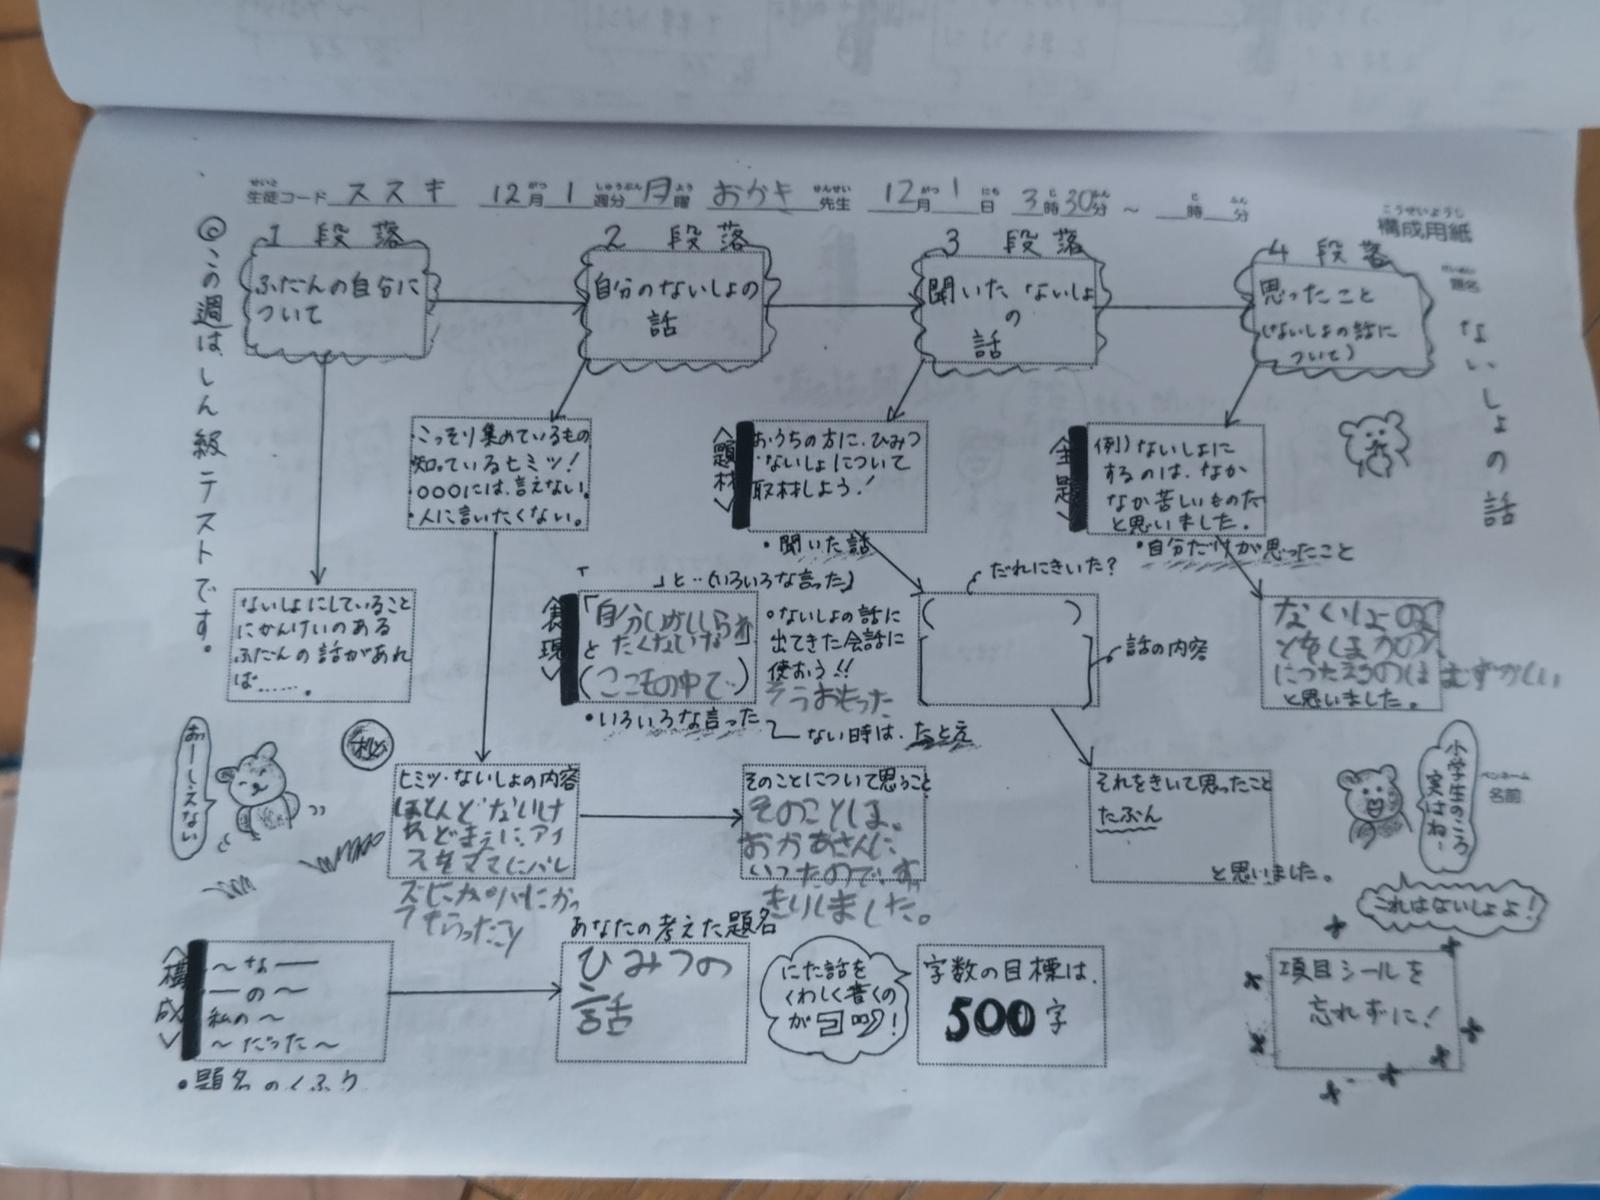 生徒コード ススキ 12月 1週分 月曜 おかき先生 12月1日 3時30分 ～ 時 分
構成用紙
題名 ないしょの話
◎この週は、しん級テストです。
1 段落
ふだんの自分に
ついて
2 段落
自分のないしょの
話
3 段落
聞いた ないしょ
の
話
4 段落
思ったこと
(ないしょの話に
ついて)
・こっそり集めているもの
知っているヒミツ!
・○○○には、言えない。
・人に言いたくない。
<題材>
おうちの方に、ひみつ
・ないしょについて
取材しよう!
・聞いた話
<主題>
例)ないしょに
するのは、なか
なか苦しいものだ
と思いました。
・自分だけが思ったこと
ないしょにしていること
にかんけいのある
ふだんの話があれ
ば……。
「 」と…(いろいろな言った)
<表現>
「自分しか
たくないな」
と
(こころの中で…)
・いろいろな言った
○ないしょの話に
出てきた会話に
使おう!!
そうおもった
ない時は、たとえ
だれにきいた?
( )
[ ]
話の内容
につたえるのは むずかしい
と思いました。
おーしえない
秘
ヒミツ・ないしょの内容
ほとんどないけ
れどまえに、アイ
スをママにバレ
ズにパパにかっ
てもらったこと
そのことについて思うこと
そのことは、
おかあさんに、
いったので、すっ
きりしました。
それをきいて思ったこと
たぶん
と思いました。
ペンネーム
名前
小学生のころ
実はね…
これはないしょよ!
<構成>
～な―
―の～
私の～
～だった～
・題名のくふう
あなたの考えた題名
ひみつの
話
にた話を
くわしく書くの
が
字数の目標は、
500字
項目シールを
忘れずに!